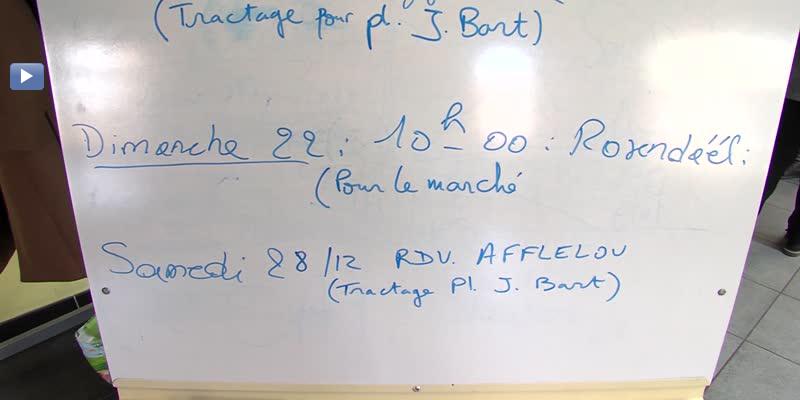 (Tractage pour pl. J. Bart)
Dimanche 22 : 10h00 : Rosendéél :
(Pour le marché
Samedi 28/12 RDV. AFFLELOU
(Tractage Pl. J. Bart)